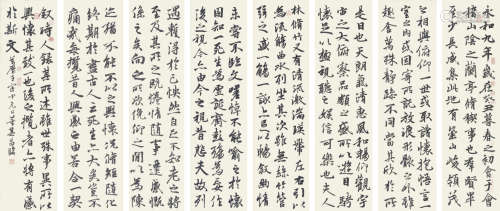 永和九年歲在癸丑暮春之初會于會稽
山陰之蘭亭脩稧事也羣賢畢
至少長咸集此地有崇山峻領茂
之相與俯仰一世或取諸懷抱悟言一
室之内或因寄所託放浪形骸之外雖
趣舍萬殊靜躁不同當其欣於所
是日也天朗氣清惠風和暢仰觀宇
宙之大俯察品類之盛所以遊目騁
懷足以極視聽之娛信可樂也夫人
林脩竹又有清流激湍暎帶左右引以
為流觴曲水列坐其次雖無絲竹管
弦之盛一觴一詠亦足以暢敘幽情
未嘗不臨文嗟悼不能喻之於懷
固知一死生為虛誕齊彭殤為妄作
後之視今亦由今之視昔悲夫故列
遇暫得於己快然自足不知老之將
至及其所之既惓情隨事遷感慨
係之矣向之所欣俛仰之間以為陳
迹猶不能不以之興懷況脩短隨化
終期於盡古人云死生亦大矣豈不
痛哉每攬昔人興感之由若合一契
敘時人錄其所述雖世殊事異所以
興懷其致一也後之攬者亦將有感
於斯文